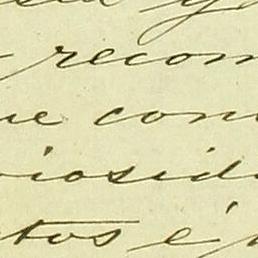 recom
ue com
iosid
tos é